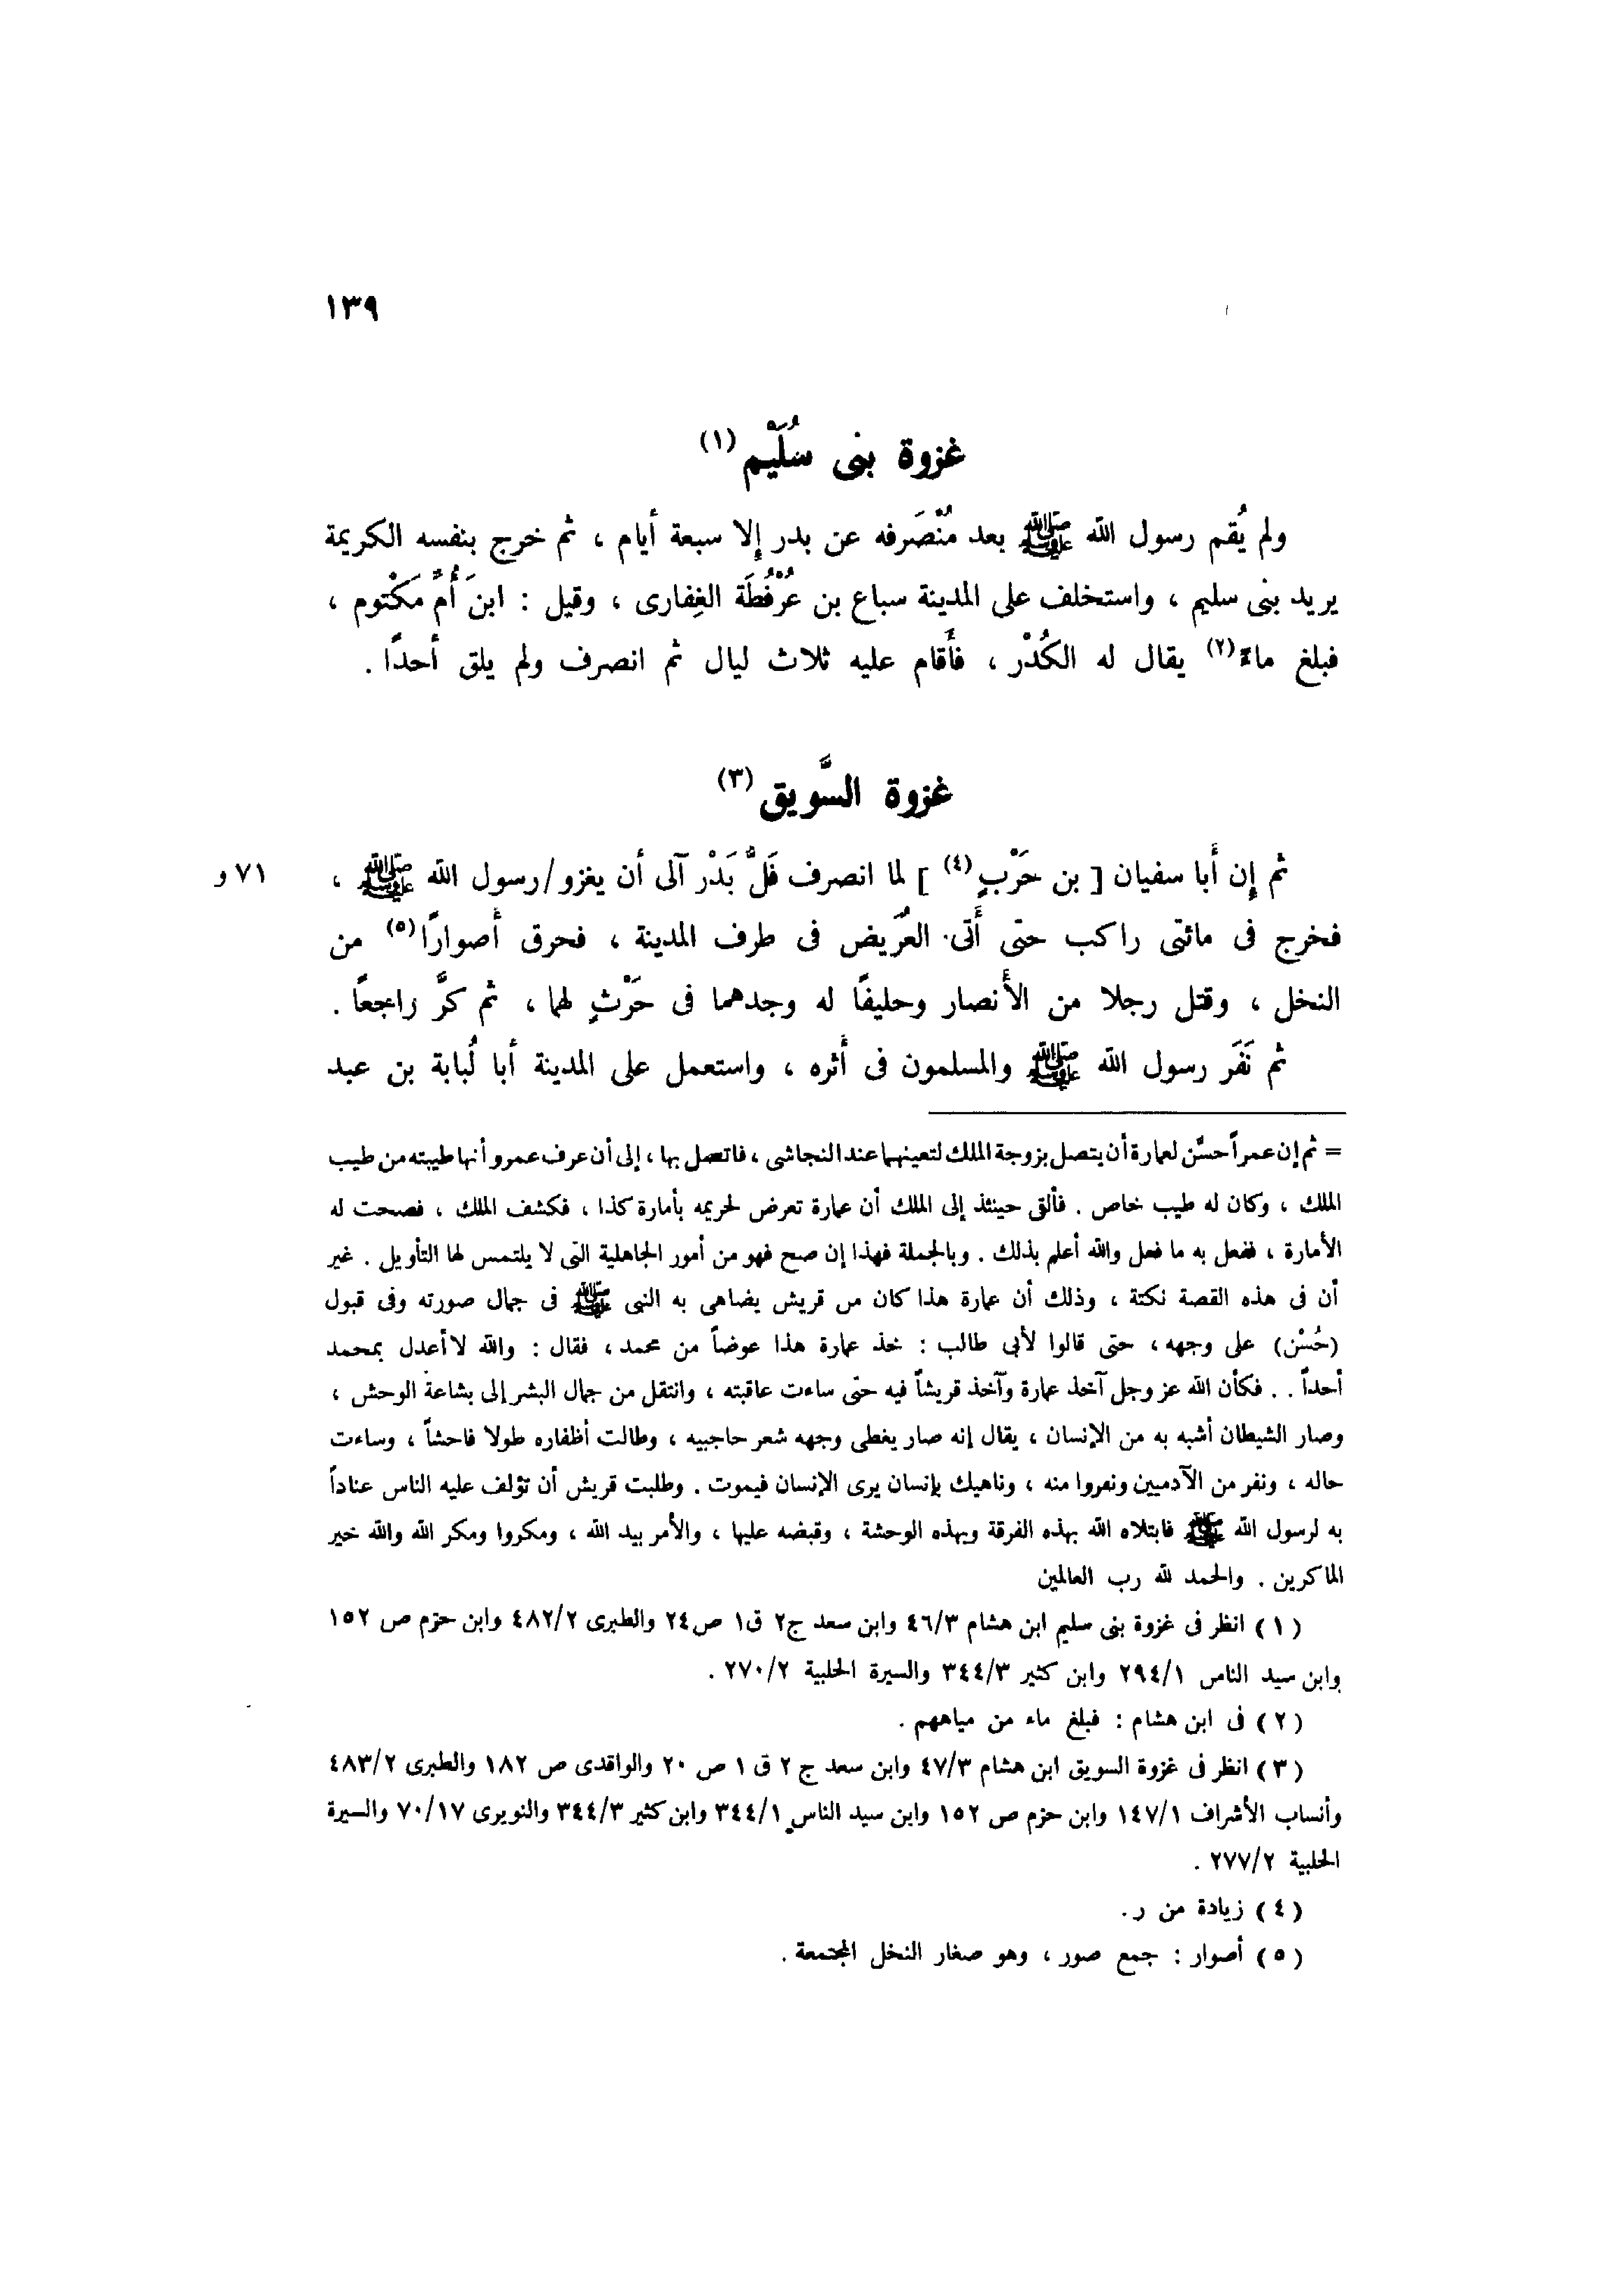 ١٣٩
غزوة بنى سُلَيْم (١)
ولم يُقم رسول الله ﷺ بعد مُنْصَرفه عن بدر إلا سبعة أيام ، ثم خرج بنفسه الكريمة
يريد بنى سليم ، واستخلف على المدينة سباع بن عُرْفُطَة الغِفارى ، وقيل : ابنَ أُمِّ مَكْتوم ،
فبلغ ماءً (٢) يقال له الكُدْر ، فأَقام عليه ثلاث ليال ثم انصرف ولم يلق أحدًا .
غزوة السَّويق (٣)
ثم إن أَبا سفيان [ بن حَرْبٍ (٤) ] لما انصرف فَلُّ بَدْر آلى أن يغزو/رسول الله ﷺ ،
٧١ و
فخرج فى مائتى راكب حتى أَتى العُرَيض فى طرف المدينة ، فحرق أَصوارًا (٥) من
النخل ، وقتل رجلا من الأَنصار وحليفًا له وجدهما فى حَرْثٍ لهما ، ثم كرَّ راجعًا .
ثم نَفَر رسول الله ﷺ والمسلمون فى أَثره ، واستعمل على المدينة أبا لُبابة بن عبد
= ثم إن عمراً حسَّن لعمارة أن يتصل بزوجة الملك لتعينهما عند النجاشى ، فاتصل بها ، إلى أن عرف عمرو أنها طيبته من طيب
الملك ، وكان له طيب خاص . فألق حينئذ إلى الملك أن عمارة تعرض لحريمه بأمارة كذا ، فكشف الملك ، فصحت له
الأمارة ، ففعل به ما فعل والله أعلم بذلك . وبالجملة فهذا إن صح فهو من أمور الجاهلية التى لا يلتمس لها التأويل . غير
أن فى هذه القصة نكتة ، وذلك أن عمارة هذا كان من قريش يضاهى به النبى ﷺ فى جمال صورته وفى قبول
(حُسْن) على وجهه ، حتى قالوا لأبى طالب : خذ عمارة هذا عوضاً من محمد ، فقال : والله لا أعدل بمحمد
أحداً . . فكأن الله عز وجل آخذ عمارة وآخذ قريشاً فيه حتى ساءت عاقبته ، وانتقل من جمال البشر إلى بشاعة الوحش ،
وصار الشيطان أشبه به من الإنسان ، يقال إنه صار يغطى وجهه شعر حاجبيه ، وطالت أظفاره طولا فاحشاً ، وساءت
حاله ، ونفر من الآدميين ونفروا منه ، وناهيك بإنسان يرى الإنسان فيموت . وطلبت قريش أن تؤلف عليه الناس عناداً
به لرسول الله ﷺ فابتلاه الله بهذه الفرقة وبهذه الوحشة ، وقبضه عليها ، والأمر بيد الله ، ومكروا ومكر الله والله خير
الماكرين . والحمد لله رب العالمين
( ١ ) انظر فى غزوة بنى سليم ابن هشام ٤٦/٣ وابن سعد ج٢ ق١ ص٢٤ والطبرى ٤٨٢/٢ وابن حزم ص ١٥٢
وابن سيد الناس ٢٩٤/١ وابن كثير ٣٤٤/٣ والسيرة الحلبية ٢٧٠/٢ .
( ٢ ) فى ابن هشام : فبلغ ماء من مياههم .
( ٣ ) انظر فى غزوة السويق ابن هشام ٤٧/٣ وابن سعد ج ٢ ق ١ ص ٢٠ والواقدى ص ١٨٢ والطبرى ٤٨٣/٢
وأنساب الأشراف ١٤٧/١ وابن حزم ص ١٥٢ وابن سيد الناس ٣٤٤/١ وابن كثير ٣٤٤/٣ والنويرى ٧٠/١٧ والسيرة
الحلبية ٢٧٧/٢ .
( ٤ ) زيادة من ر.
( ٥ ) أصوار : جمع صور ، وهو صغار النخل المجتمعة .